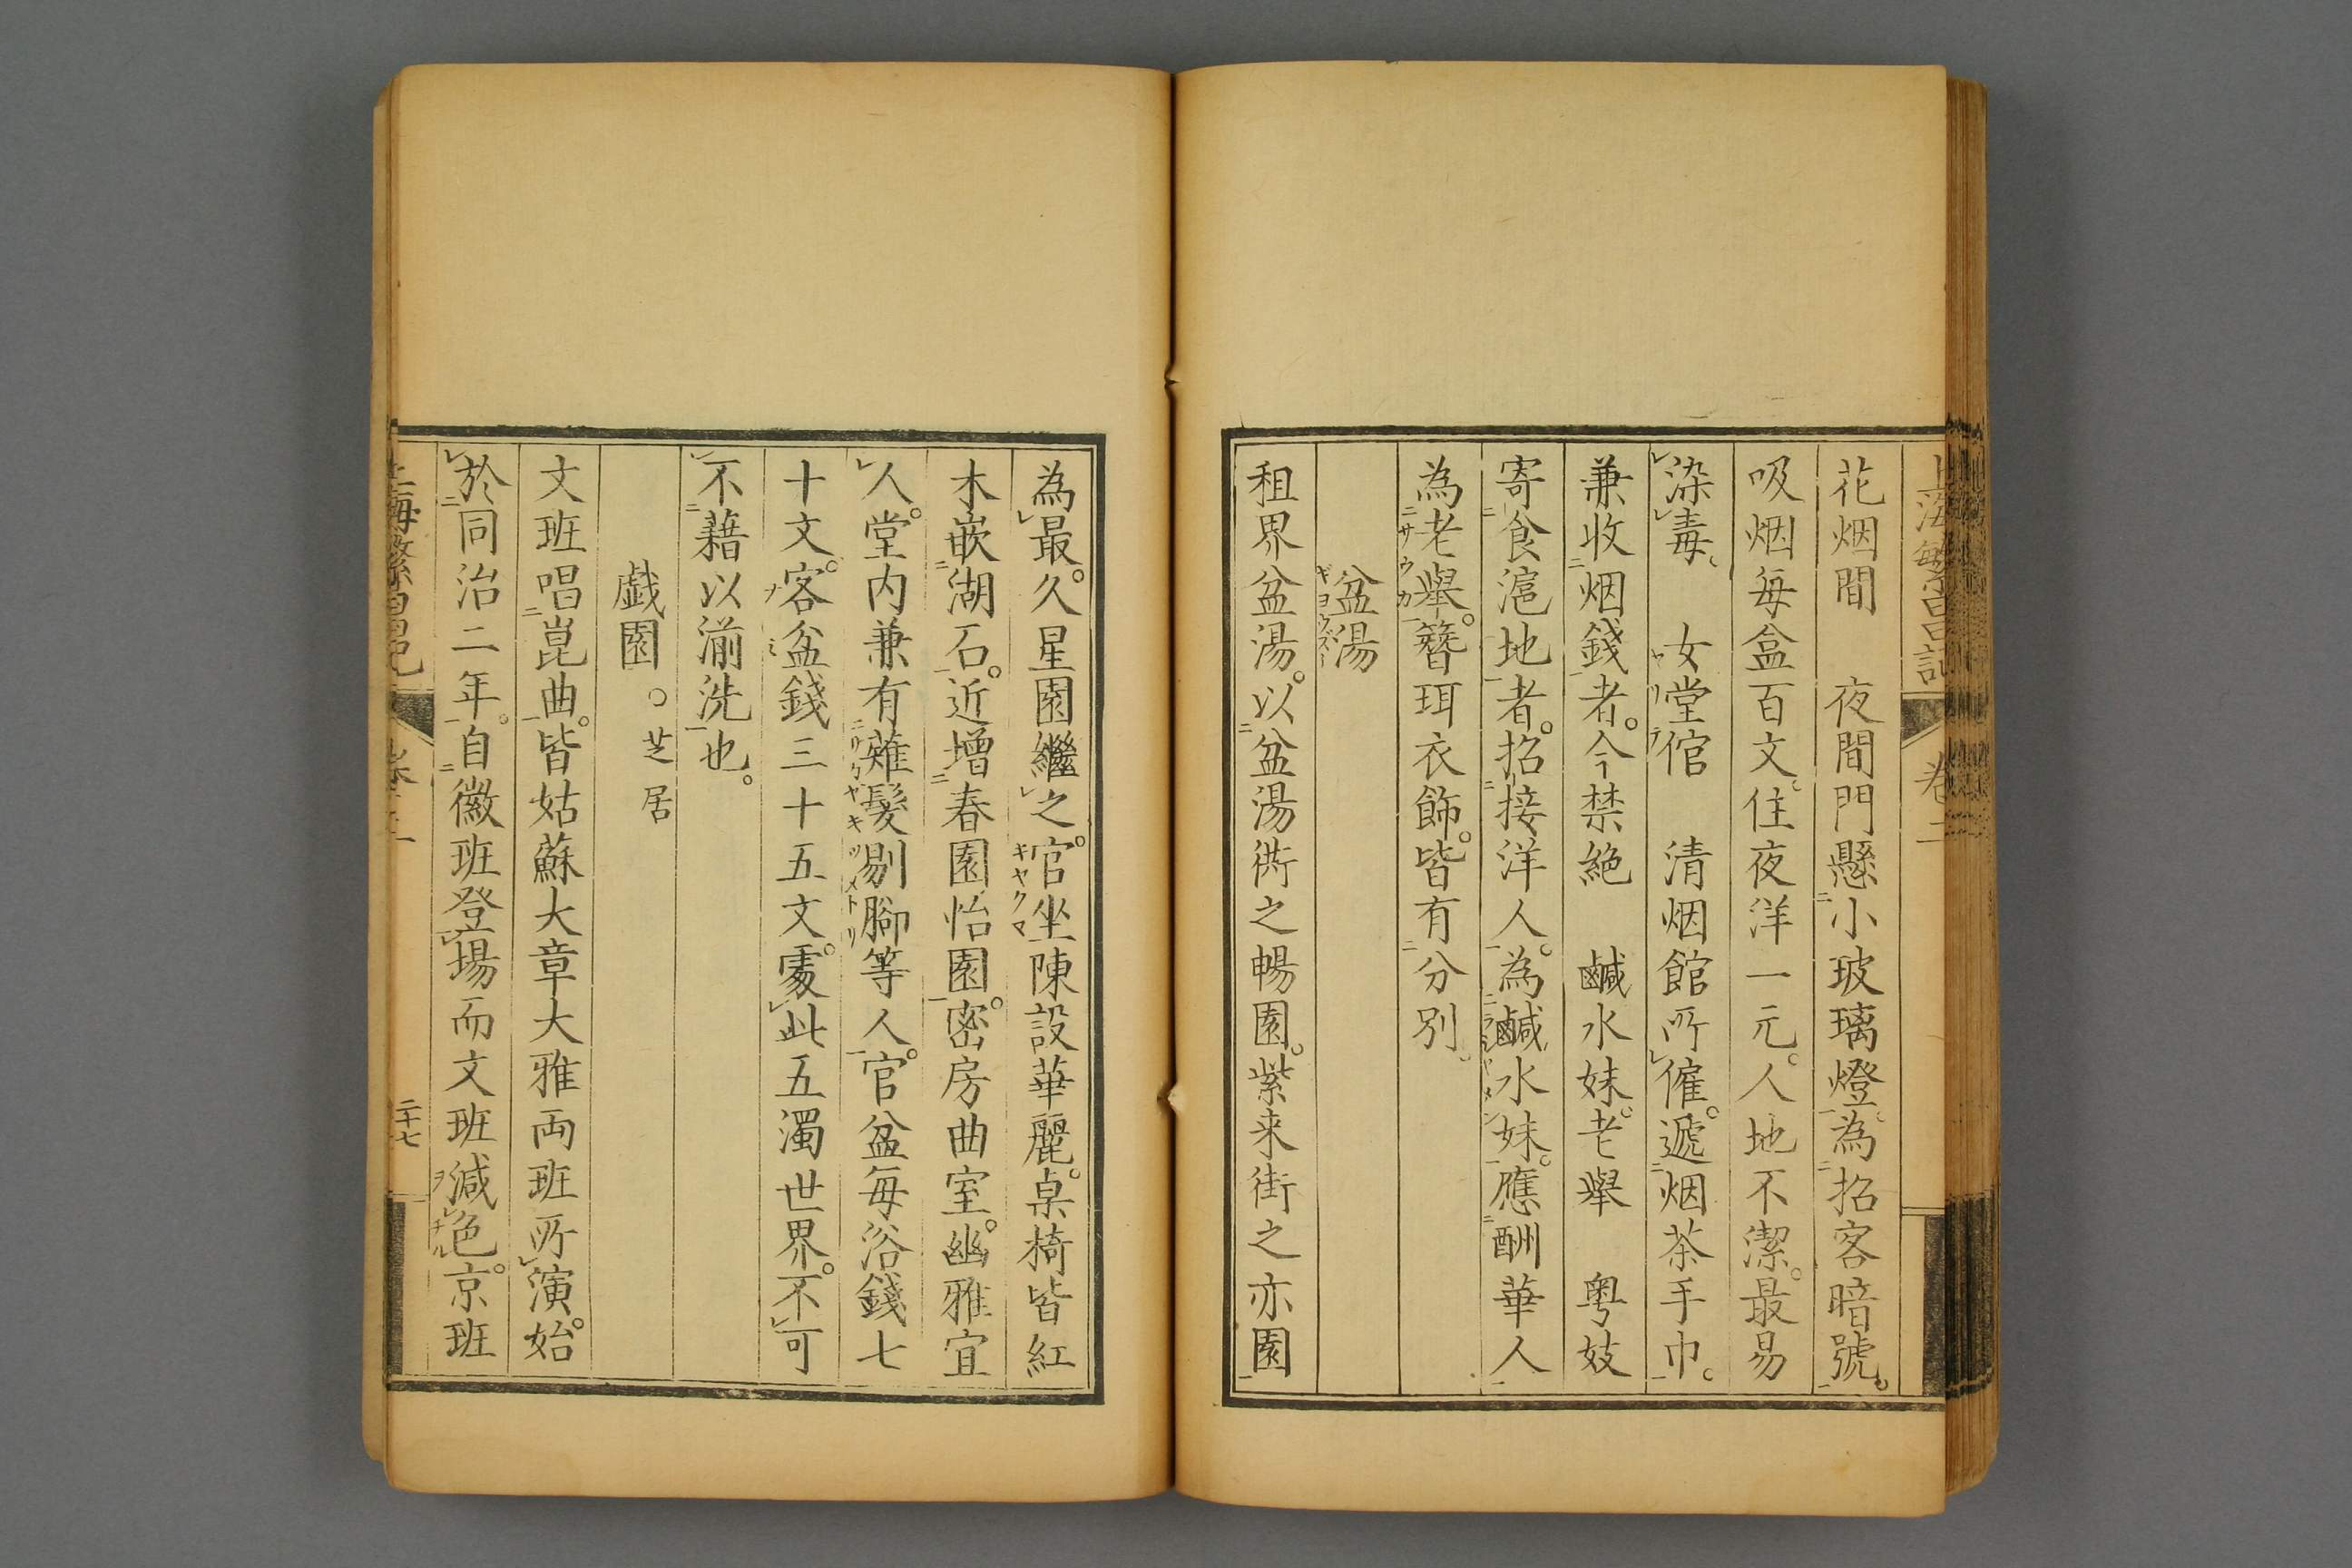 上海繁昌記 卷二
花烟間 夜間門懸小玻璃燈為招客暗號。
吸烟每盒百文住夜洋一元。人地不潔。最易
染毒 女堂倌 清烟館所僱。遞烟茶手巾。
兼收烟錢者。今禁絶 鹹水妹。老舉 粤妓
寄食滬地者。招接洋人。為鹹水妹。應酬華人
為老舉。簪珥衣飾。皆有分別
盆湯
租界盆湯。以盆湯衖之暢園。紫来街之亦園
為最。久星園繼之。官坐陳設華麗。桌椅皆紅
木嵌湖石。近增春園怡園。密房曲室。幽雅宜
人。堂内兼有薙髮剔腳等人。官盆每浴錢七
十文。客盆錢三十五文。處此五濁世界。不可
不藉以湔洗也。
戯園。芝居
文班唱崑曲。皆姑蘇大章大雅両班所演。始
於同治二年。自徽班登場而文班減色。京班
上海繁昌記 卷二 二十七